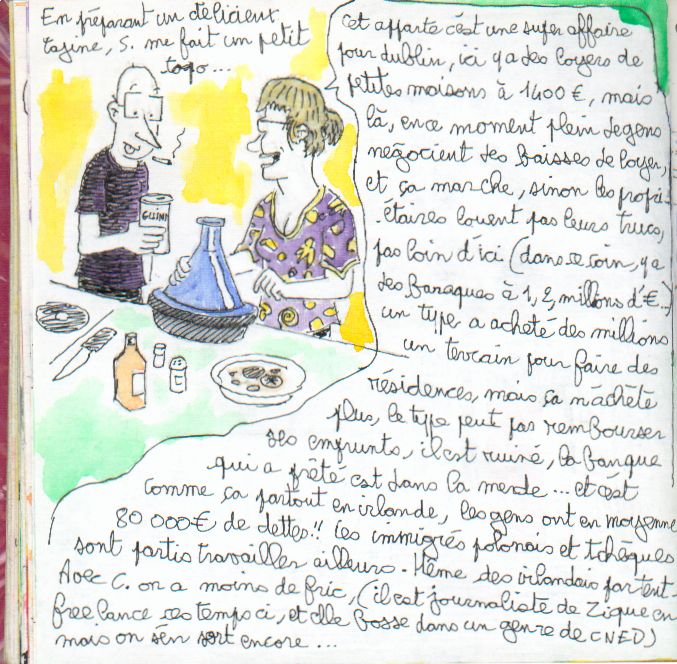 En préparant un délicieux
tagine, S. me fait un petit
topo...
GUINN
Cet apparte c'est une super affaire
pour dublin, ici y a des loyers de
petites maisons à 1400 €, mais
là, en ce moment plein de gens
négocient des baisses de loyer,
et ça marche, sinon les propri-
étaires louent pas leurs trucs,
pas loin d'ici (dans ce coin, y a
des baraques à 1,2, millions d'€...)
un type a acheté des millions
un terrain pour faire des
résidences, mais ça n'achète
plus, le type peut pas rembourser
ses emprunts, il est ruiné, la banque
qui a prêté est dans la merde... et c'est
comme ça partout en irlande, les gens ont en moyenne
80 000€ de dettes!! Les immigrés polonais et tchèques
sont partis travailler ailleurs. Même des irlandais partent.
Avec C. on a moins de fric, (il est journaliste de Zique en
free lance ces temps ci, et elle bosse dans un genre de CNED)
mais on s'en sort encore...